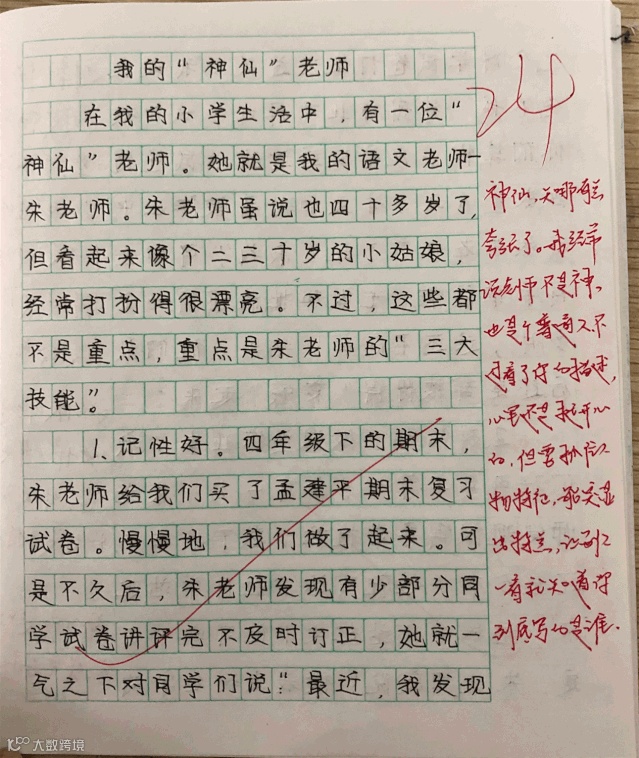 我的“神仙”老师
在我的小学生活中，有一位“
神仙”老师。她就是我的语文老师—
朱老师。朱老师虽说也四十多岁了，
但看起来像个二三十岁的小姑娘，
经常打扮得很漂亮。不过，这些都
不是重点，重点是朱老师的“三大
技能”。
1、记性好。四年级下的期末，
朱老师给我们买了孟建平期末复习
试卷。慢慢地，我们做了起来。可
是不久后，朱老师发现有少部分同
学试卷讲评完不及时订正，她就一
气之下对同学们说“最近，我发现
24
神仙，太哪有点
夸张了。我经常
说老师不是神，
也是个普通人，不
过看了你的描述，
心里还是挺开心
的，但要抓住人
物特征，能突显
出特点，让别人
一看就知道你
到底写的是谁.
大数跨境